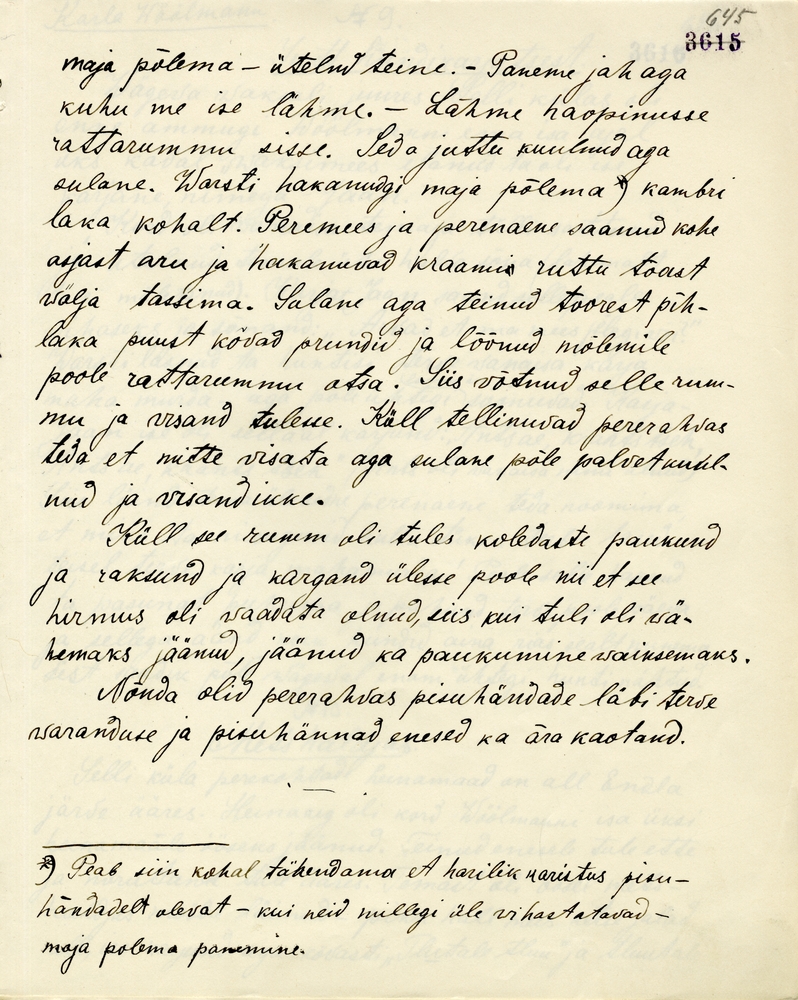 645
3615
maja põlema – ütelnd teine. – Paneme jah aga
kuhu me ise lähme. – Lähme haopinusse
rattarummu sisse. Seda juttu kuulnud aga
sulane. Warsti hakanudgi maja põlema *) kambri
laka kohalt. Peremees ja perenaene saanud kohe
asjast aru ja hakanuvad kraami ruttu toast
wälja tassima. Sulane aga teinud toorest pih-
laka puust kõvad prundid ja löönud mõlemile
poole rattarummu otsa. Siis võtnud selle rum-
mu ja visand tulesse. Küll tellinuvad pererahvas
teda et mitte visata aga sulane põle palvet kuul-
nud ja visand ikke.
Küll see rumm oli tules koledaste paukund
ja raksund ja kargand ülesse poole nii et see
hirmus oli vaadata olnud, siis kui tuli oli vä-
hemaks jäänud, jäänud ka paukumine waiksemaks.
Nõnda olid pererahvas pisuhändade läbi terve
waranduse ja pisuhännad enesed ka ära kaotand.
*) Peab siin kohal tähendama et harilik karistus pisu-
händadelt olevat – kui neid millegi üle vihastatavad –
maja polema panemine.